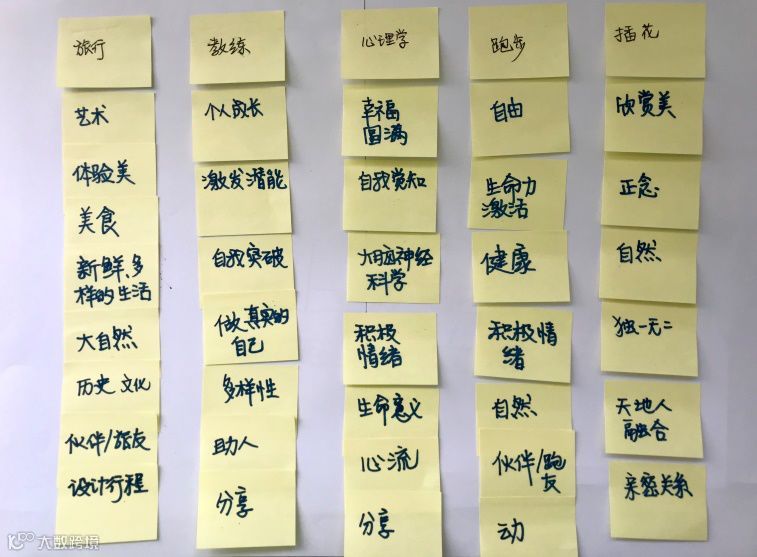 旅行
艺术
体验美
美食
新鲜、多
样的生活
大自然
历史文化
伙伴/旅友
设计行程
教练
个人成长
激发潜能
自我突破
做真实的
自己
多样性
助人
分享
心理学
幸福
圆满
自我觉知
大脑神经
科学
积极
情绪
生命意义
心流
分享
跑步
自由
生命力
激活
健康
积极情
绪
自然
伙伴/跑
友
动
插花
欣赏美
正念
自然
独一无二
天地人
融合
亲密关系
大数跨境